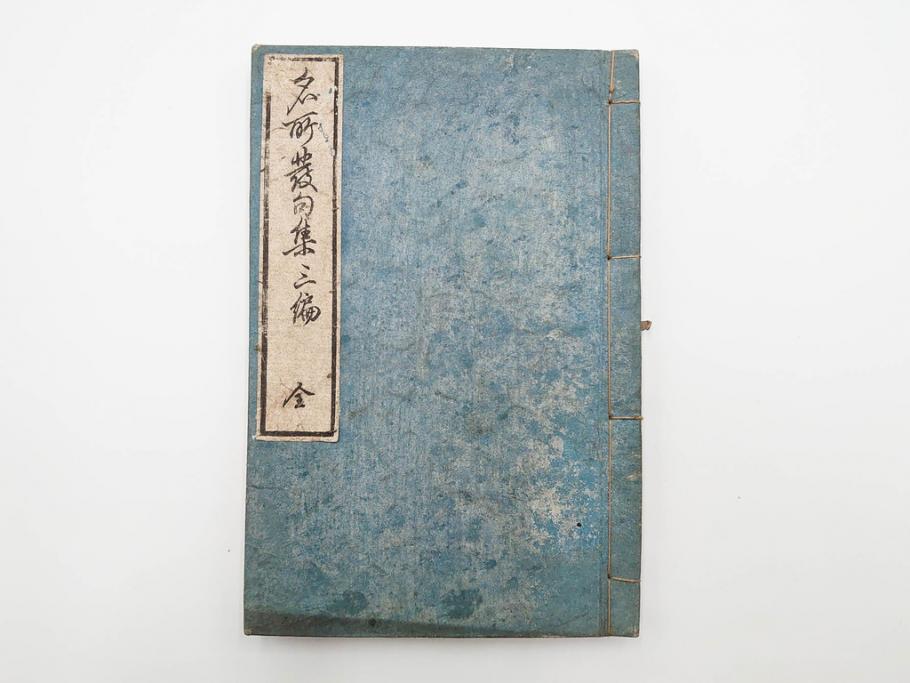 名所發句集三編 全